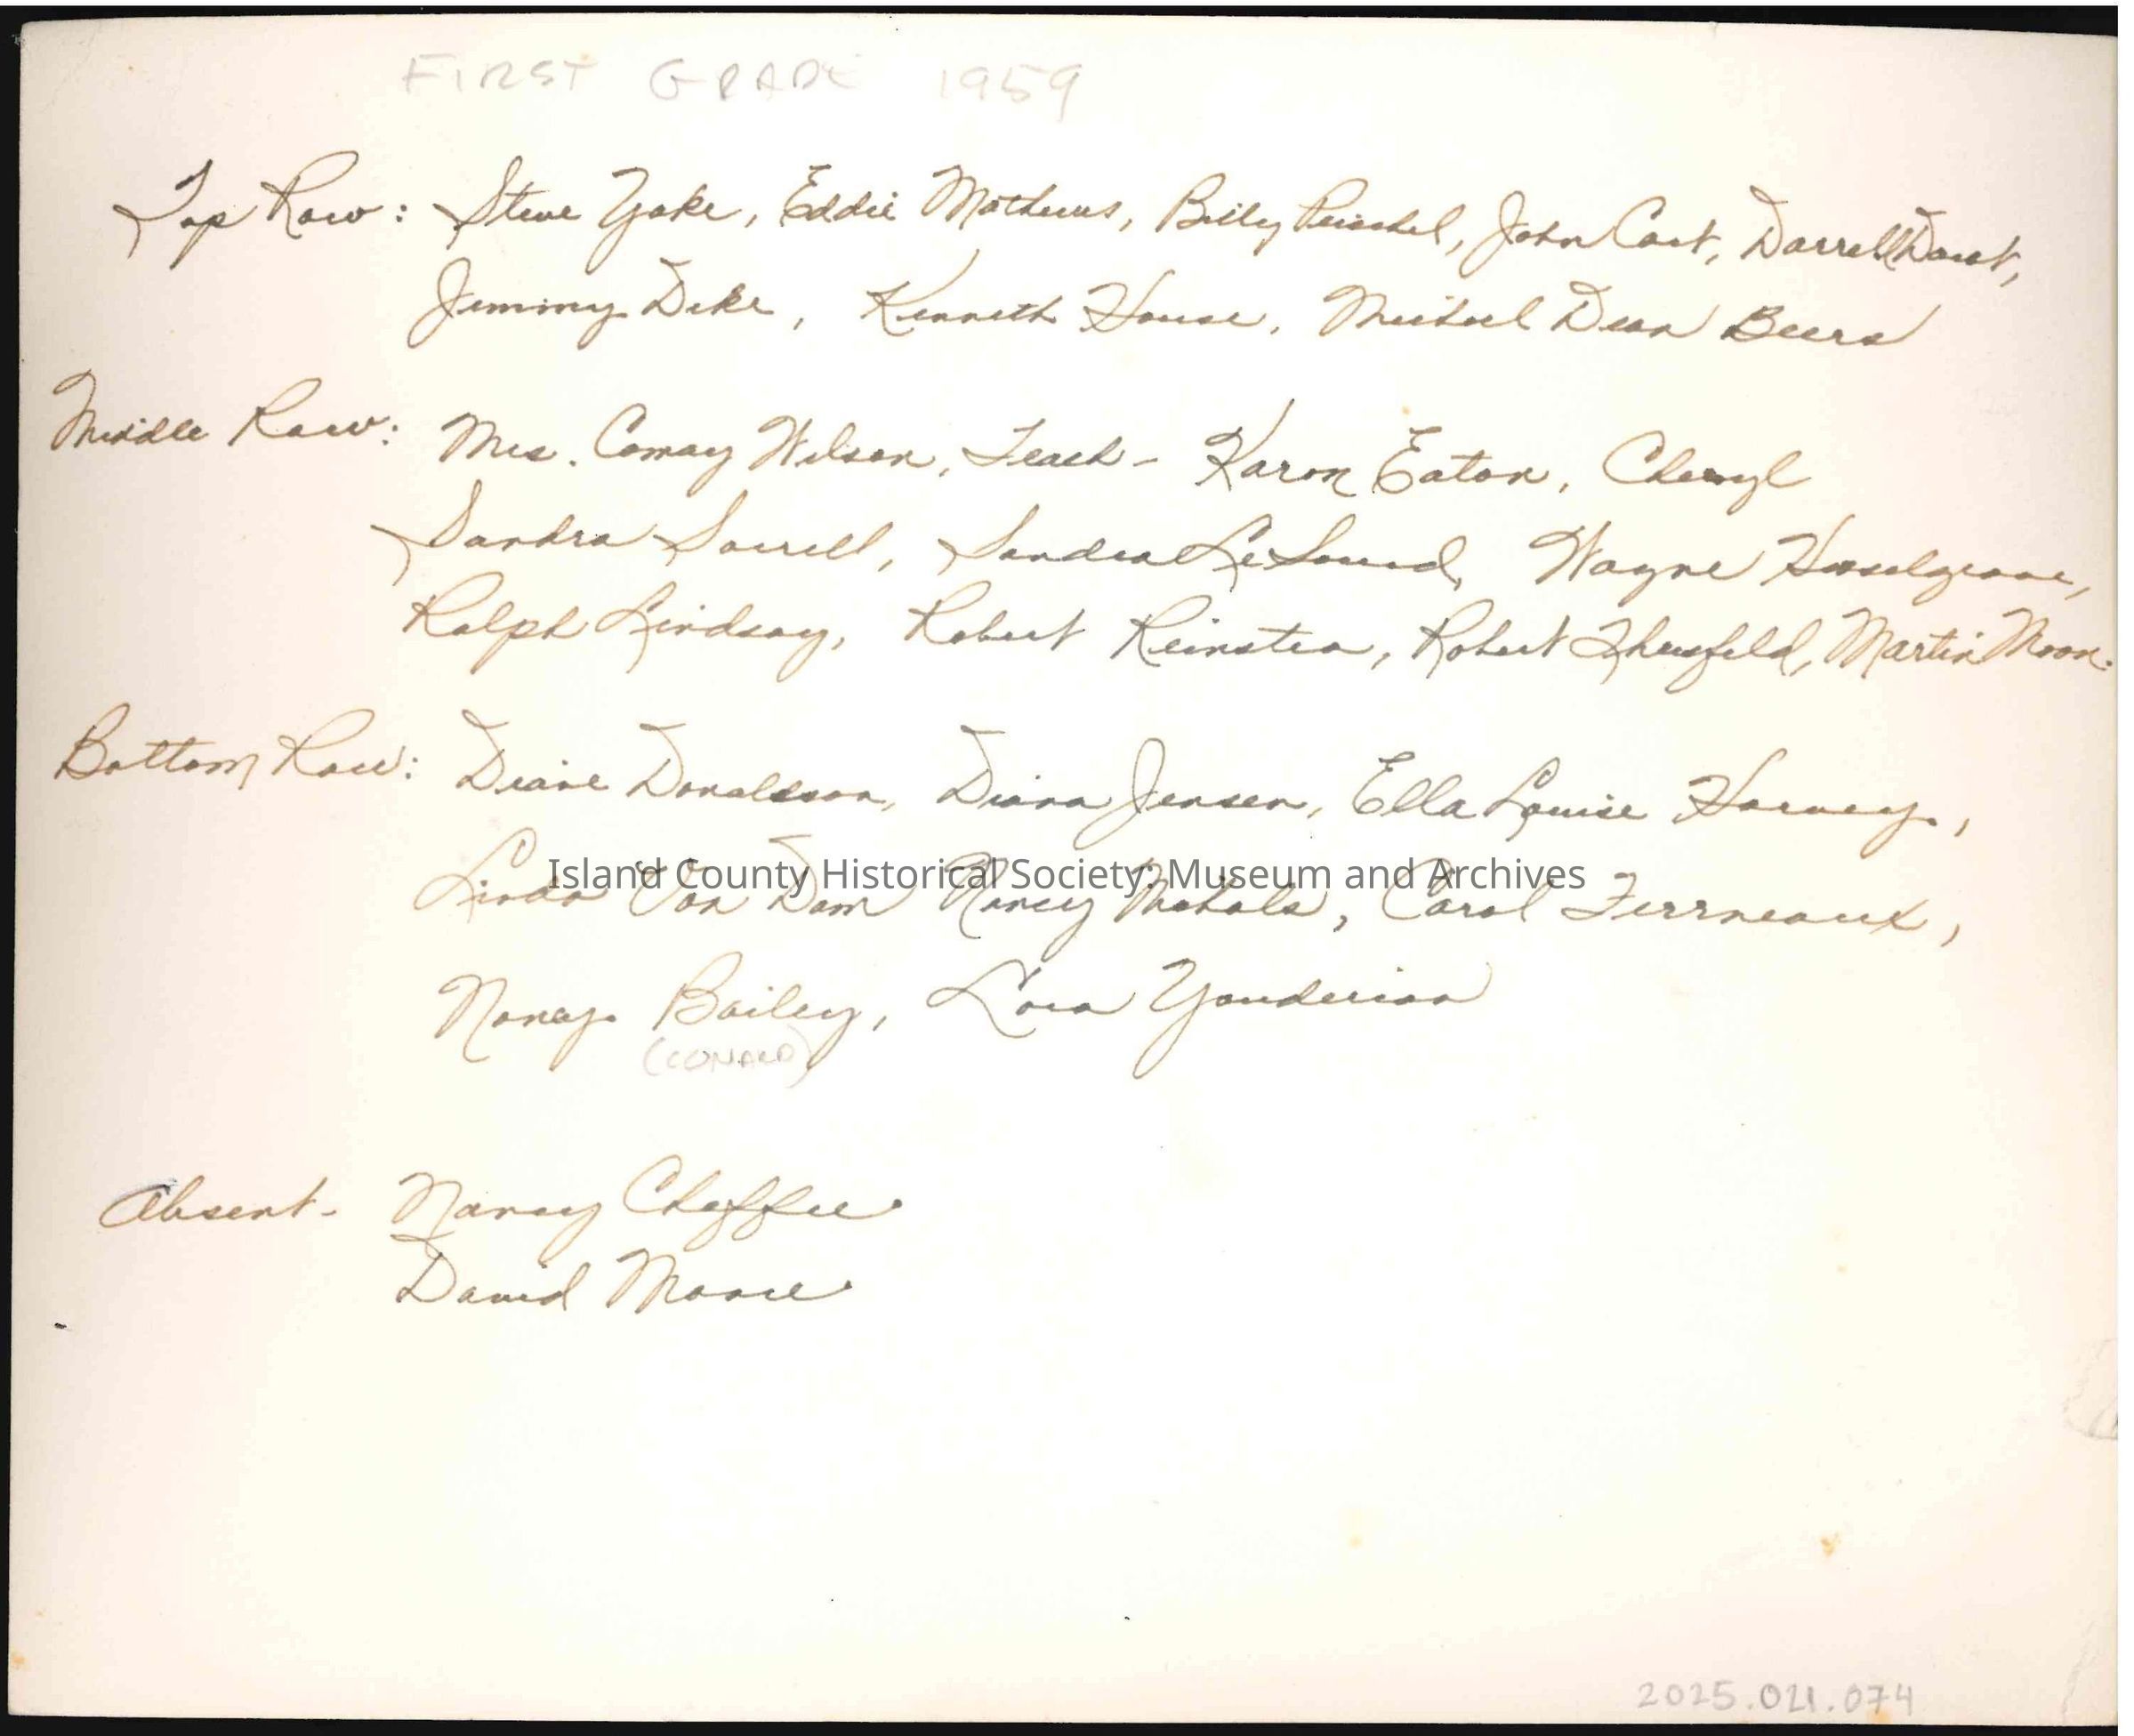 FIRST GRADE 1959
Top Row: Steve Yake, Eddie Mathews, Billy Peischel, John Cart, Darrell Darst,
Jimmy Dike, Kenneth House, Michael Dean Beers
Middle Row: Mrs. Comay Wilson, Teach- Karon Eaton, Cheryl
Sandra Sorrell, Sandra LeSourd, Wayne Hasselgrave,
Ralph Lindsay, Robert, Robert, Martin Moon.
Bottom Row: Diane Donaldson, Diana Jensen, Ella Louise Harvey,
Island County Historical Society: Museum and Archives
Linda Van Dam Nancy Nichols, Carol Ferrneaux,
Nancy Bailey, Lora Youderian
(CONARD)
Absent- Nancy Chaffee
David Moore
2025.021.074